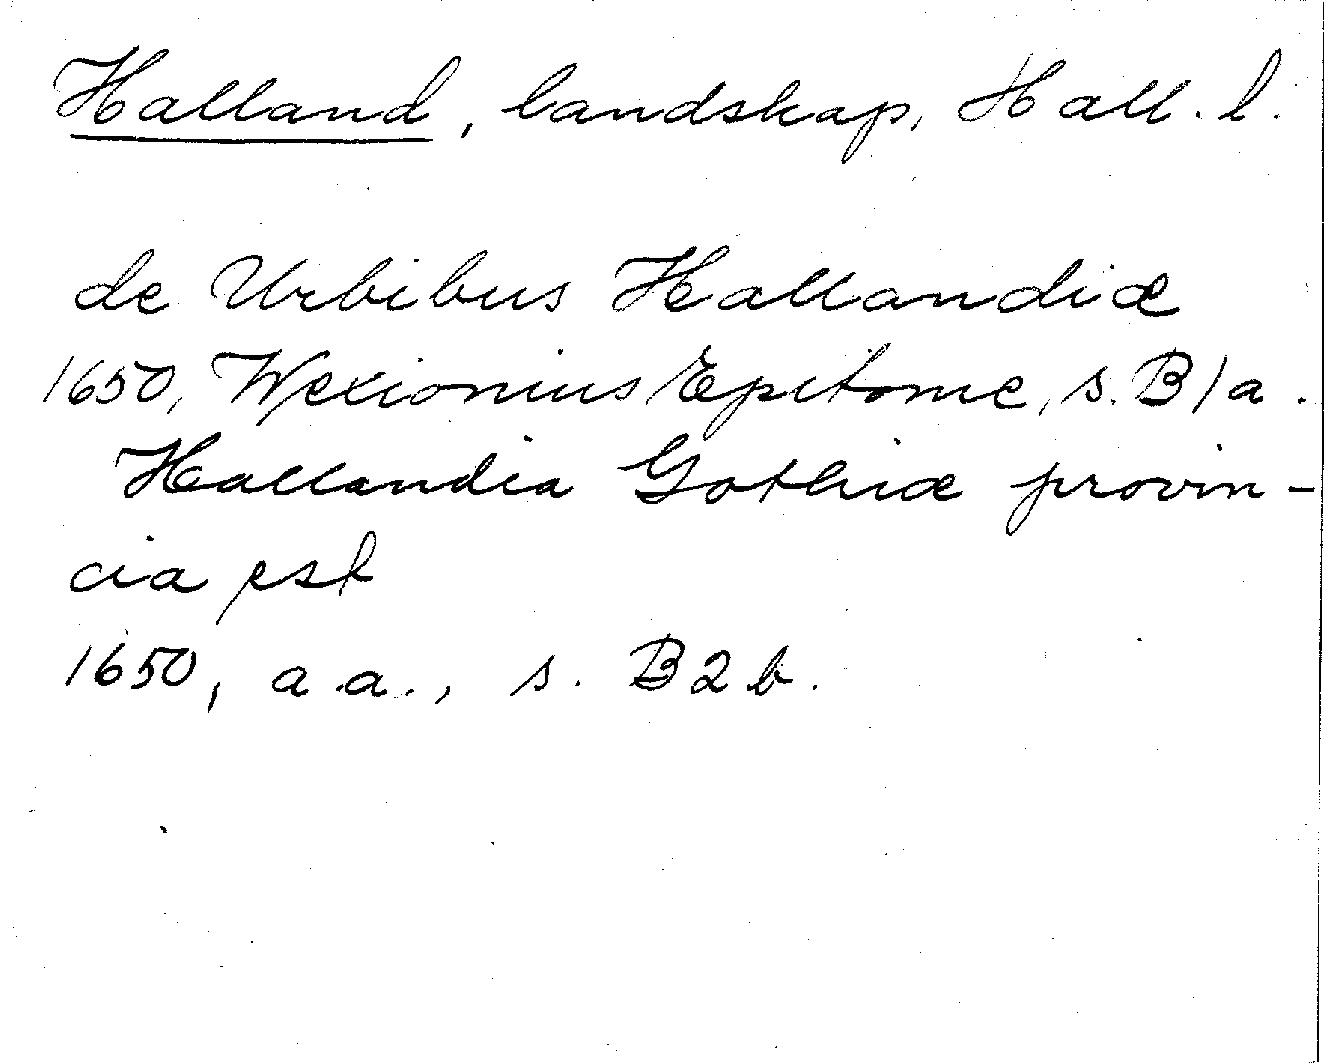 Halland, landskap, Hall. l.
de Urbibus Hallandiæ
1650, Wexionius Epitome, s. B1a.
Hallandia Gothiæ provin-
cia est
1650, a.a., s. B2b.